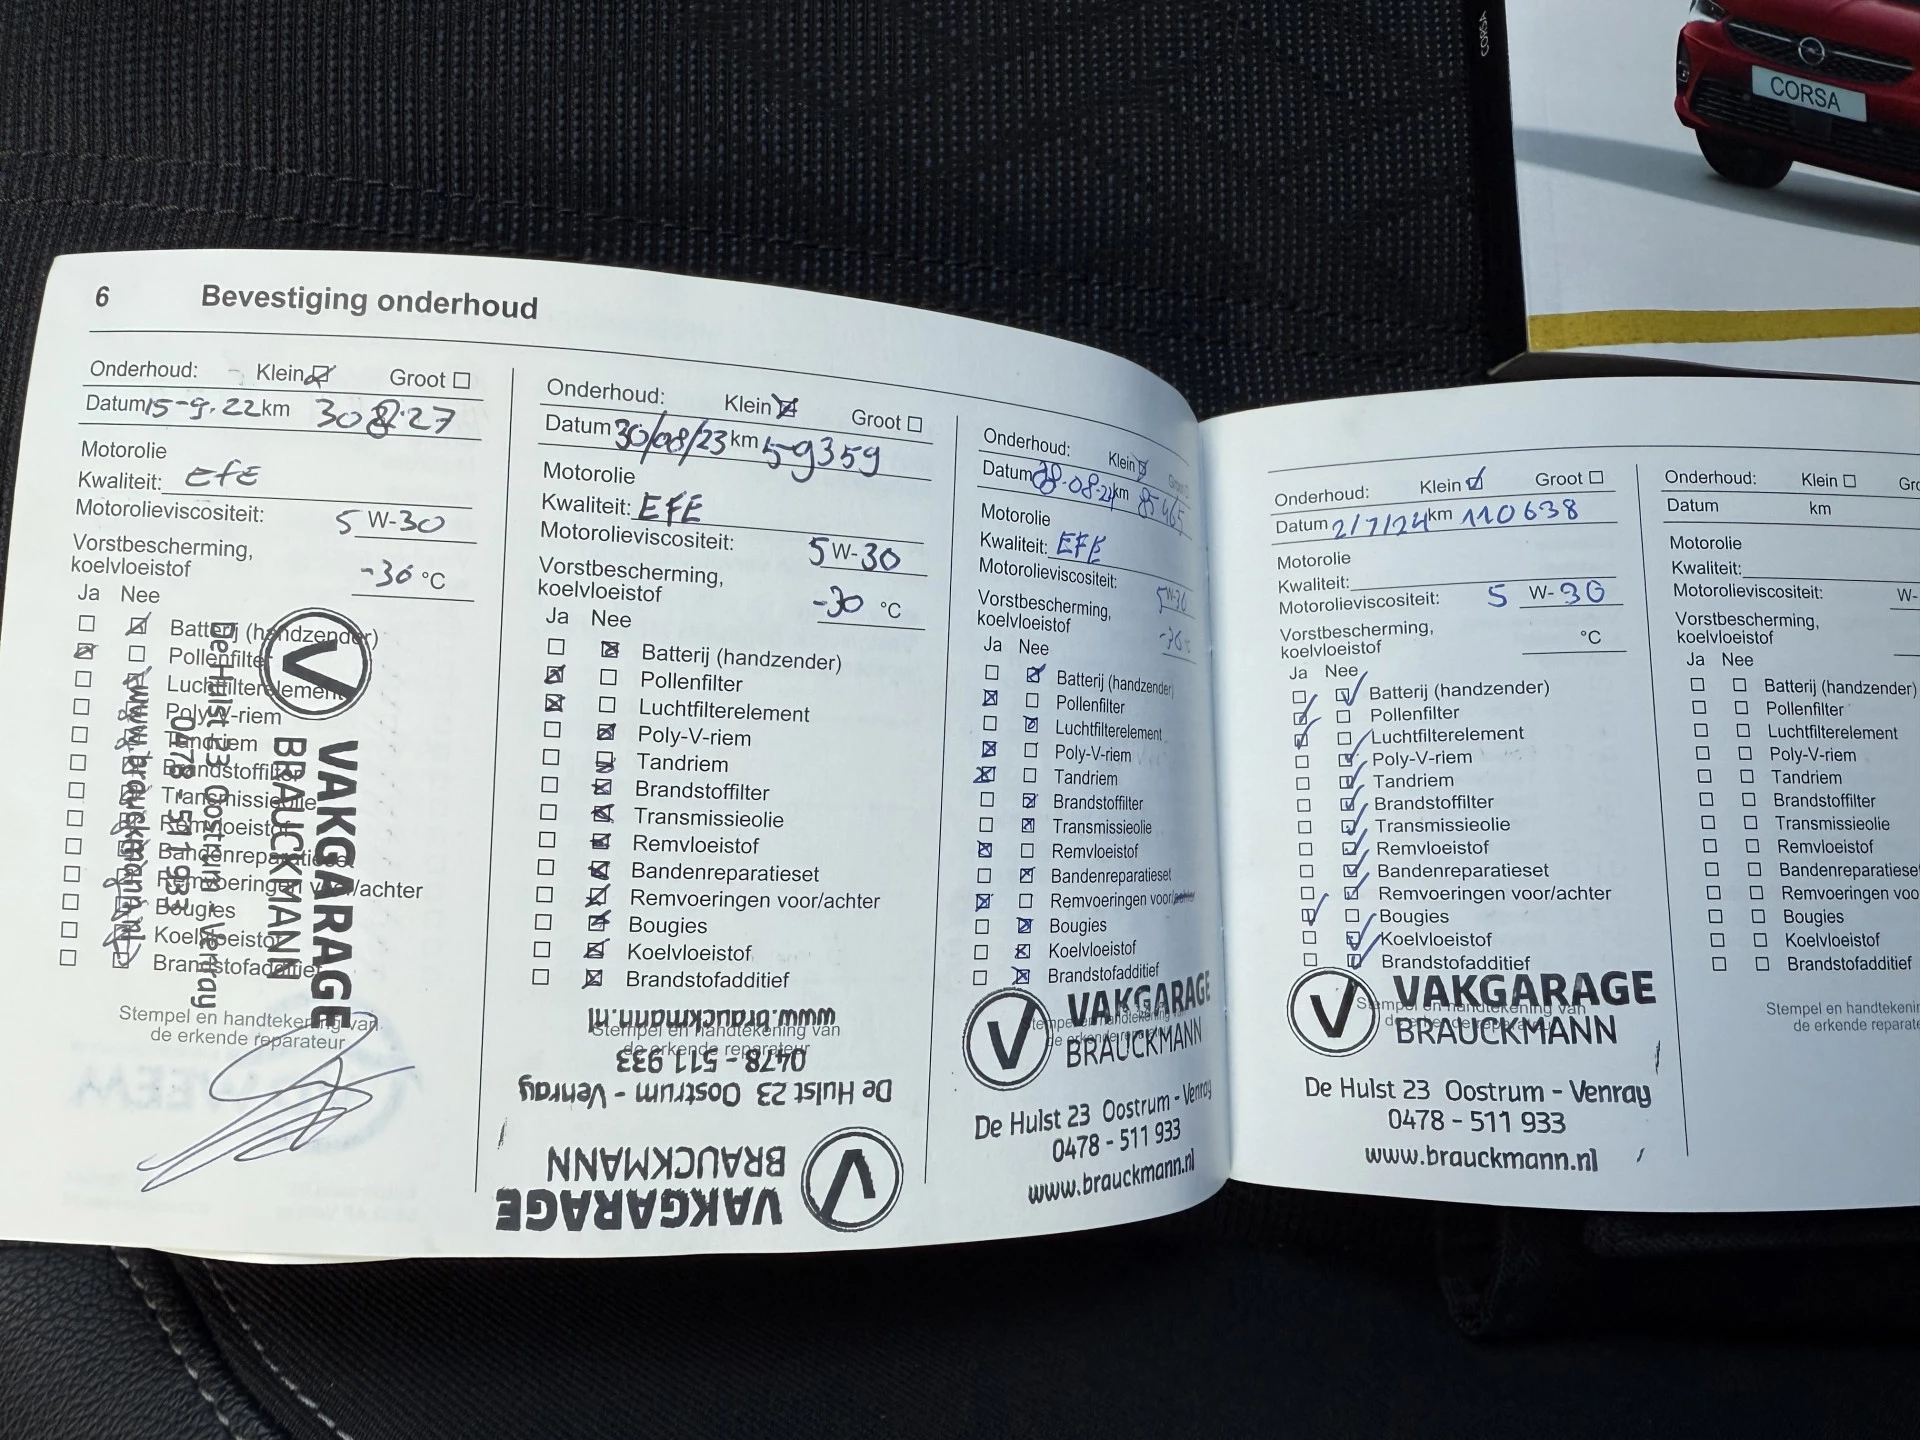 CORSA
CORSA
6 Bevestiging onderhoud
Onderhoud: Klein Groot
Datum 15-9-22 km 30827
Motorolie
Kwaliteit: EFE
Motorolieviscositeit: 5 W-30
Vorstbescherming,
koelvloeistof -30 °C
Ja Nee
Batterij (handzender)
Pollenfilter
Luchtfilterelement
Poly-V-riem
Tandriem
Brandstoffilter
Transmissieolie
Remvloeistof
Bandenreparatieset
Remvoeringen voor/achter
Bougies
Koelvloeistof
Brandstofadditief
Stempel en handtekening van
de erkende reparateur
VAKGARAGE
BRAUCKMANN
De Hulst 23 Oostrum - Venray
0478 - 511 933
www.brauckmann.nl
Onderhoud: Klein Groot
Datum 30/08/23 km 59359
Motorolie
Kwaliteit: EFE
Motorolieviscositeit: 5 W-30
Vorstbescherming,
koelvloeistof -30 °C
Ja Nee
Batterij (handzender)
Pollenfilter
Luchtfilterelement
Poly-V-riem
Tandriem
Brandstoffilter
Transmissieolie
Remvloeistof
Bandenreparatieset
Remvoeringen voor/achter
Bougies
Koelvloeistof
Brandstofadditief
Stempel en handtekening van
de erkende reparateur
VAKGARAGE
BRAUCKMANN
De Hulst 23 Oostrum - Venray
0478 - 511 933
www.brauckmann.nl
Onderhoud: Klein Groot
Datum km 85465
Motorolie
Kwaliteit: EFE
Motorolieviscositeit: 5 W-30
Vorstbescherming,
koelvloeistof -30 °C
Ja Nee
Batterij (handzender)
Pollenfilter
Luchtfilterelement
Poly-V-riem
Tandriem
Brandstoffilter
Transmissieolie
Remvloeistof
Bandenreparatieset
Remvoeringen voor/achter
Bougies
Koelvloeistof
Brandstofadditief
Stempel en handtekening van
de erkende reparateur
VAKGARAGE
BRAUCKMANN
De Hulst 23 Oostrum - Venray
0478 - 511 933
www.brauckmann.nl
Onderhoud: Klein Groot
Datum 2/7/24 km 110638
Motorolie
Kwaliteit:
Motorolieviscositeit: 5 W-30
Vorstbescherming,
koelvloeistof °C
Ja Nee
Batterij (handzender)
Pollenfilter
Luchtfilterelement
Poly-V-riem
Tandriem
Brandstoffilter
Transmissieolie
Remvloeistof
Bandenreparatieset
Remvoeringen voor/achter
Bougies
Koelvloeistof
Brandstofadditief
Stempel en handtekening van
de erkende reparateur
VAKGARAGE
BRAUCKMANN
De Hulst 23 Oostrum - Venray
0478 - 511 933
www.brauckmann.nl
Onderhoud: Klein Gro
Datum km
Motorolie
Kwaliteit:
Motorolieviscositeit: W-
Vorstbescherming,
koelvloeistof
Ja Nee
Batterij (handzender)
Pollenfilter
Luchtfilterelement
Poly-V-riem
Tandriem
Brandstoffilter
Transmissieolie
Remvloeistof
Bandenreparatieset
Remvoeringen voo
Bougies
Koelvloeistof
Brandstofadditief
Stempel en handtekenin
de erkende reparate